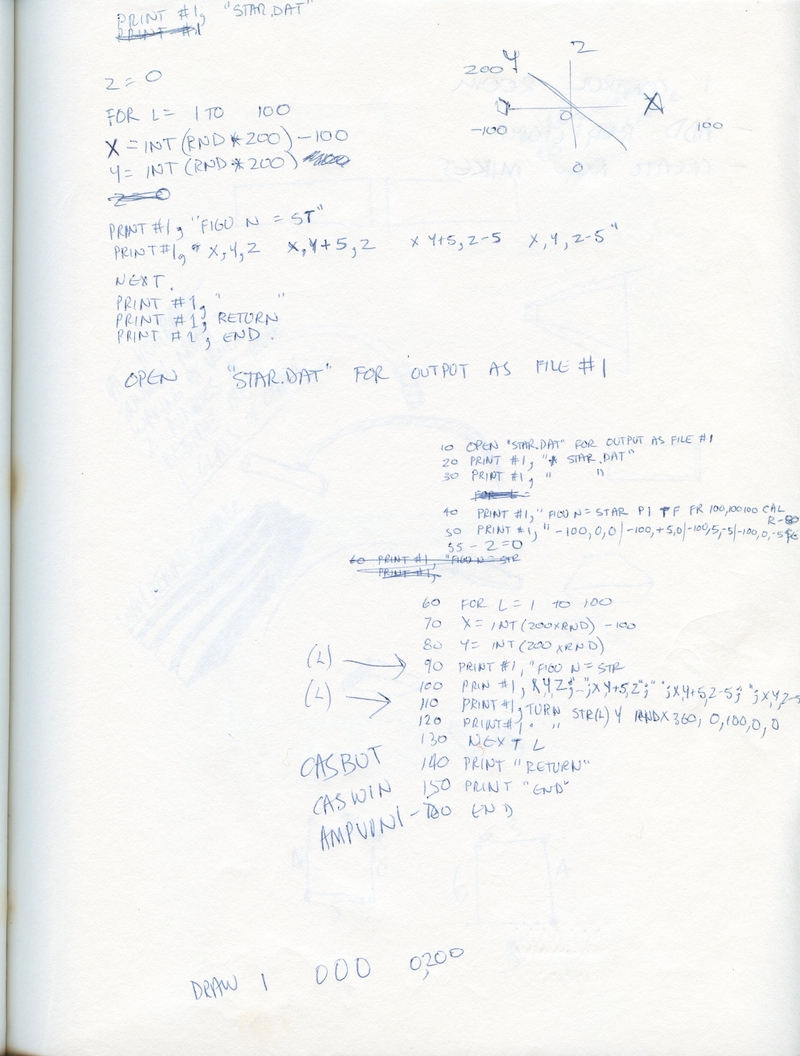 PRINT #1, "STAR.DAT"
PRINT #1
Z = 0
FOR L = 1 TO 100
X = INT (RND * 200) - 100
Y = INT (RND * 200)
Z = 0
PRINT #1, "FIGU N = ST"
PRINT #1, " X,Y,Z X,Y+5,Z X Y+5,Z-5 X,Y,Z-5"
NEXT.
PRINT #1, " "
PRINT #1, RETURN
PRINT #1, END.
OPEN "STAR.DAT" FOR OUTPUT AS FILE #1
Z
200 Y
0 X
-100 100
0
10 OPEN "STAR.DAT" FOR OUTPUT AS FILE #1
20 PRINT #1, "* STAR.DAT"
30 PRINT #1, " "
FOR L =
40 PRINT #1, "FIGU N = STAR P1 TF FR 100,100100 CAL
R-80
50 PRINT #1, " -100,0,0|-100,+5,0|-100,5,-5|-100,0,-5
55 - Z = 0
60 PRINT #1, "FIGU N = STR
PRINT #1,
60 FOR L = 1 TO 100
70 X = INT (200 x RND) - 100
80 Y = INT (200 x RND)
(L) 90 PRINT #1, "FIGU N = STR
100 PRIN #1, X,Y,Z;" ";X Y+5,Z";" ";X,Y+5,Z-5;" ";X,Y,Z-5
(L) 110 PRINT #1, TURN STR(L) Y RND X 360, 0,100,0,0
120 PRINT #1, " "
130 NEXT L
CASBUT 140 PRINT "RETURN"
CASWIN 150 PRINT "END"
AMPVDN1 - 160 END
DRAW 1 000 0,200